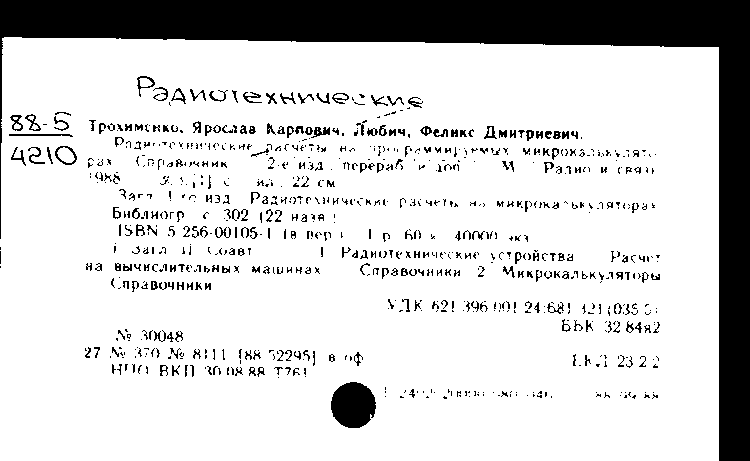 Радиотехнические
88-5
4210
Трохименко, Ярослав Карпович, Любич, Феликс Дмитриевич.
Радиотехнические расчеты на программируемых микрокалькулято-
рах Справочник 2-е изд., перераб и доп М Радио и связь
1988 с ил. 22 см
Загл 1-го изд Радиотехнические расчеты на микрокалькуляторах
Библиогр с 302 (22 назв)
ISBN 5 256-00105-1 (в пер) 1 р 60 к 40000 экз
I Загл II Соавт 1 Радиотехнические устройства Расчет
на вычислительных машинах Справочники 2 Микрокалькуляторы
Справочники
УДК 621 396 001 24:681 321(035 5)
ББК 32 84я2
№ 30048
27 № 370 № 8111 [88 52295] в оф
ЕКЛ 23 2 2
НПО ВКП 30 08 88 Т761